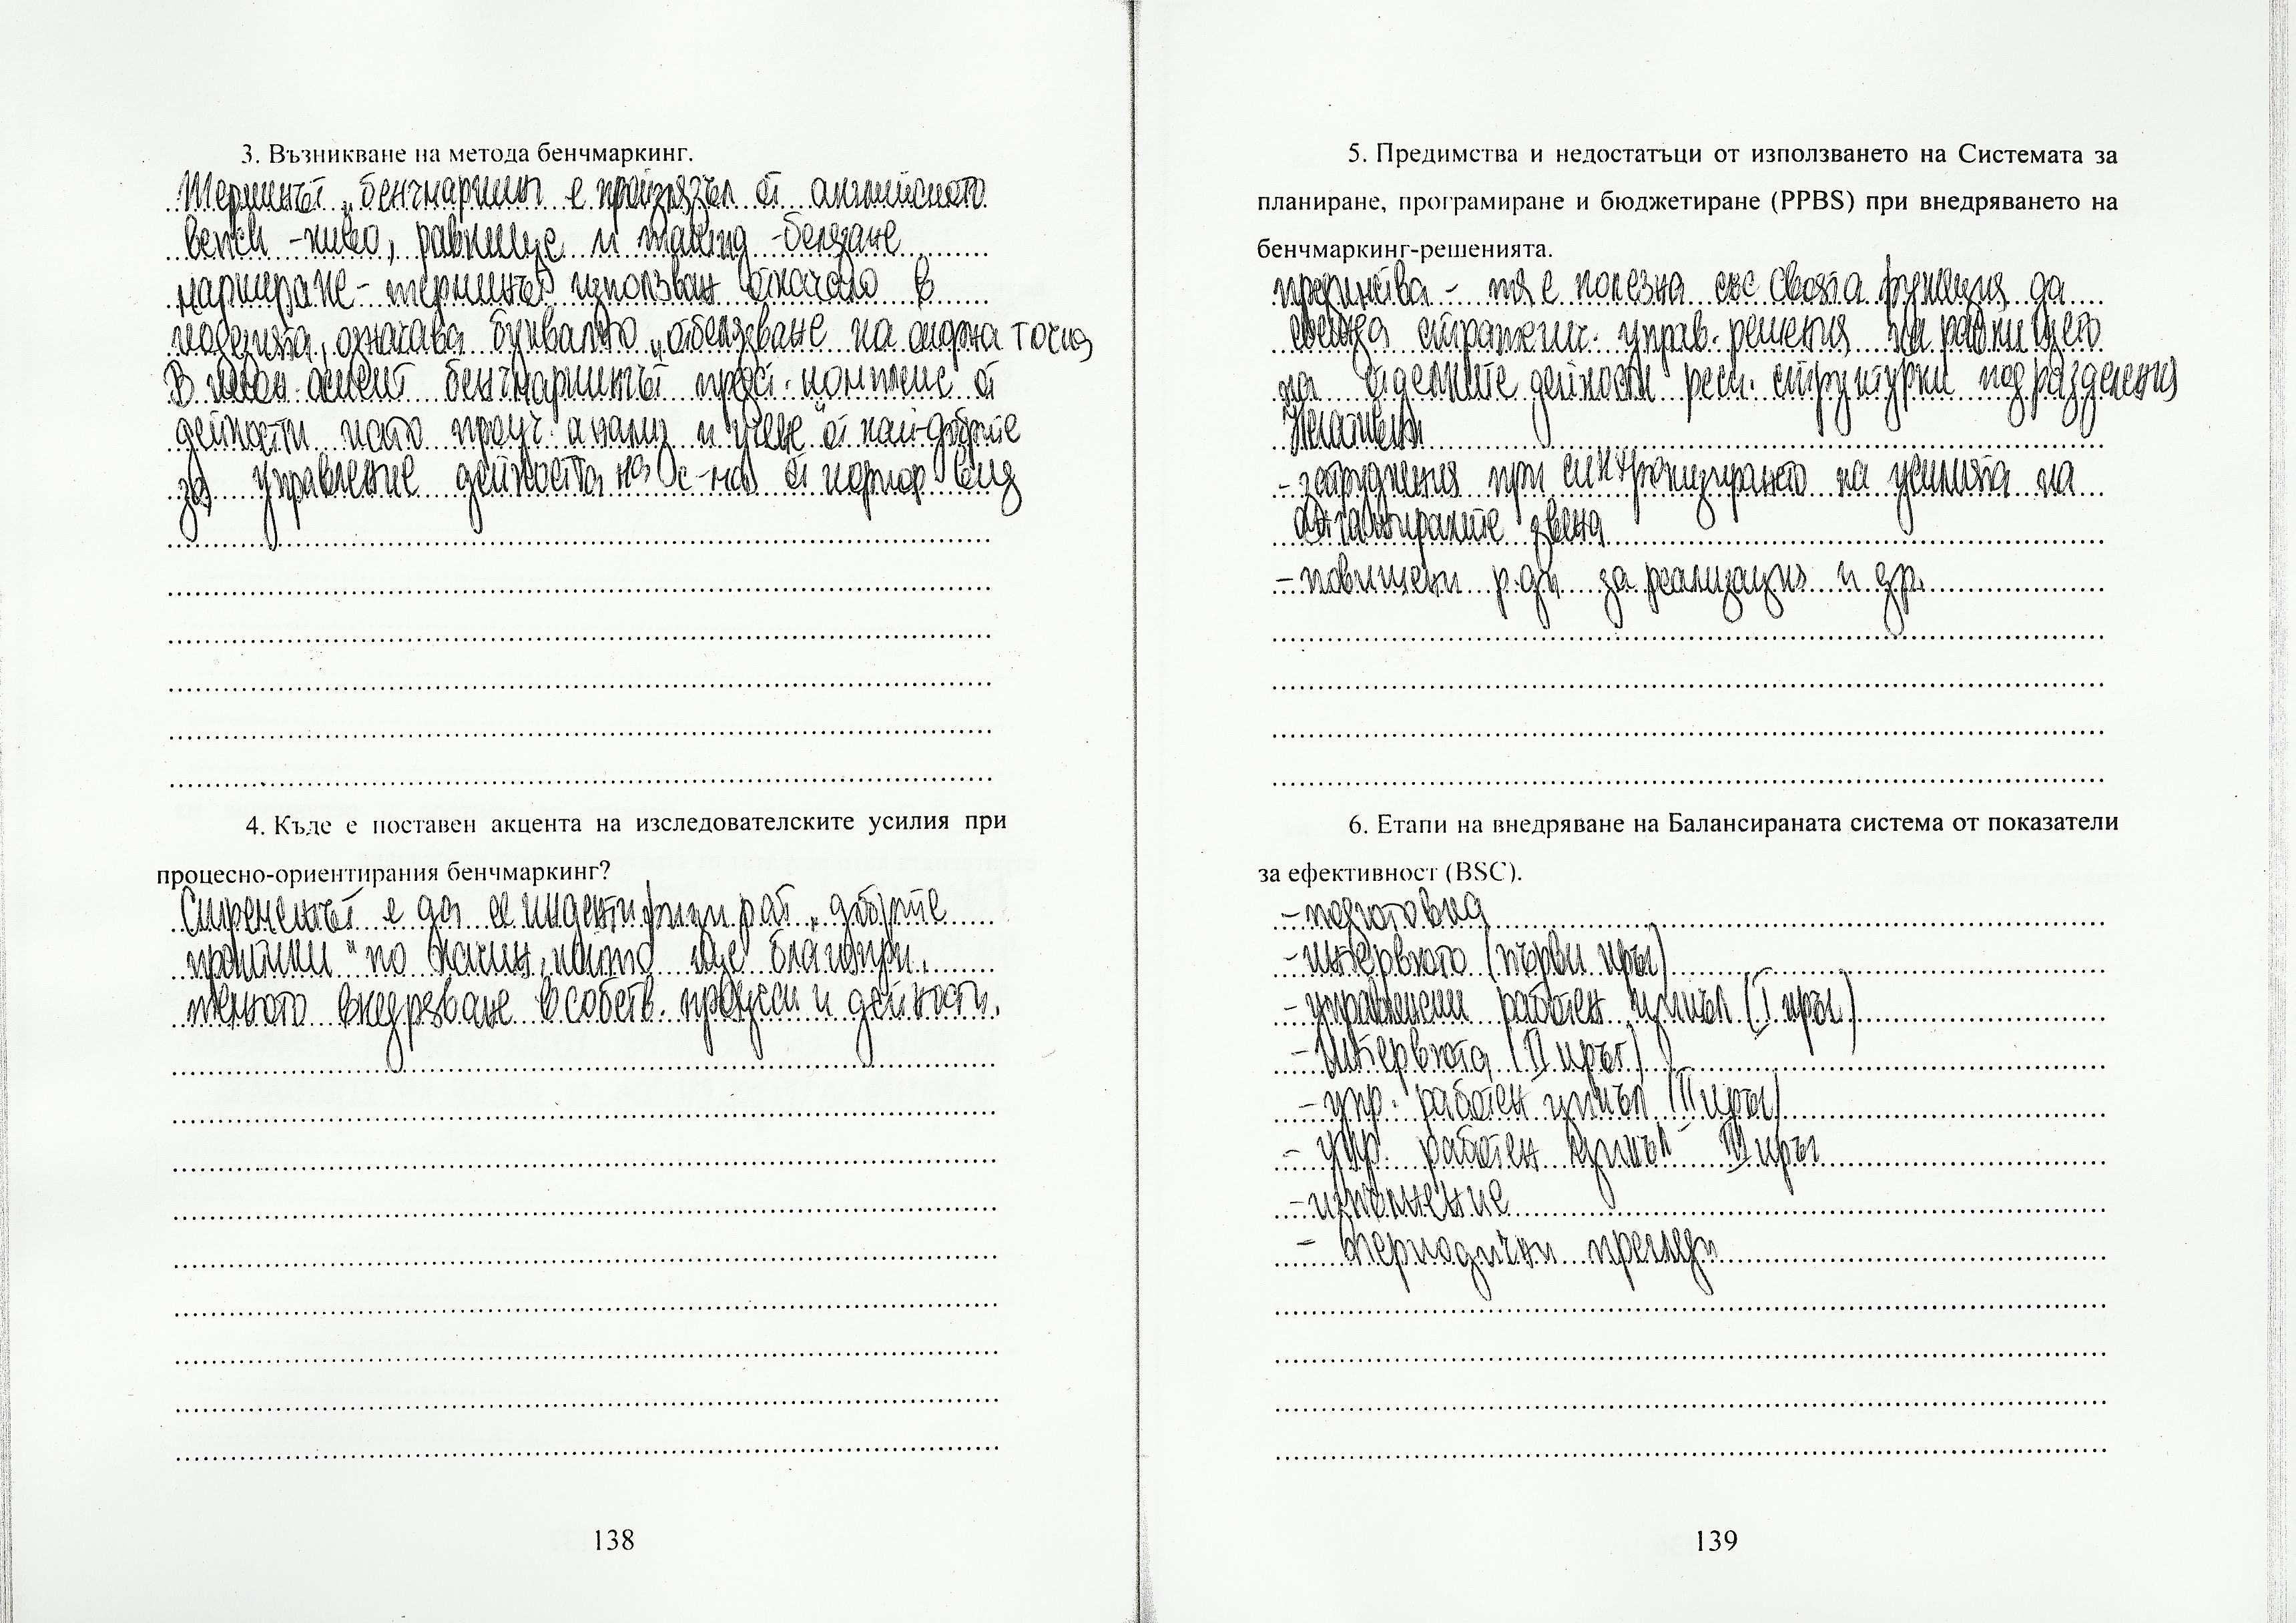 3. Възникване на метода бенчмаркинг.
Терминът „бенчмаркинг е произлязъл от английското
bench - ниво, равнище и marking - белязане
маркиране - терминът използван отначало в
геодезията, означава буквално „отбелязване на опорна точка
В аспект бенчмаркингът предст. комплекс от
дейности като проуч. анализ и учене от най-добрите
за управление дейността на с-ма от корпор вид
4. Къде е поставен акцента на изследователските усилия при
процесно-ориентирания бенчмаркинг?
Стремежът е да се индентифицират „добрите
практики" по начин, който ще благопри.
тяното внедряване в собств. процеси и дейности.
138
5. Предимства и недостатъци от използването на Системата за
планиране, програмиране и бюджетиране (PPBS) при внедряването на
бенчмаркинг-решенията.
предимства - тя е полезна със своята функция да
свежда стратегич. управ. решения на равнището
на отделните дейности респ. структурни подразделения
Негативи
- затруднения при синхронизирането на усилията на
ангажираните звена
- повишени р-ди за реализация и др.
6. Етапи на внедряване на Балансираната система от показатели
за ефективност (BSC).
- подготовка
- интервюто (първи кръг)
- управленски работен цикъл (I кръг)
- интервюта (II кръг)
- упр. работен цикъл (II кръг)
- упр. работен цикъл III кръг
- изпълнение
- периодични прегледи
139